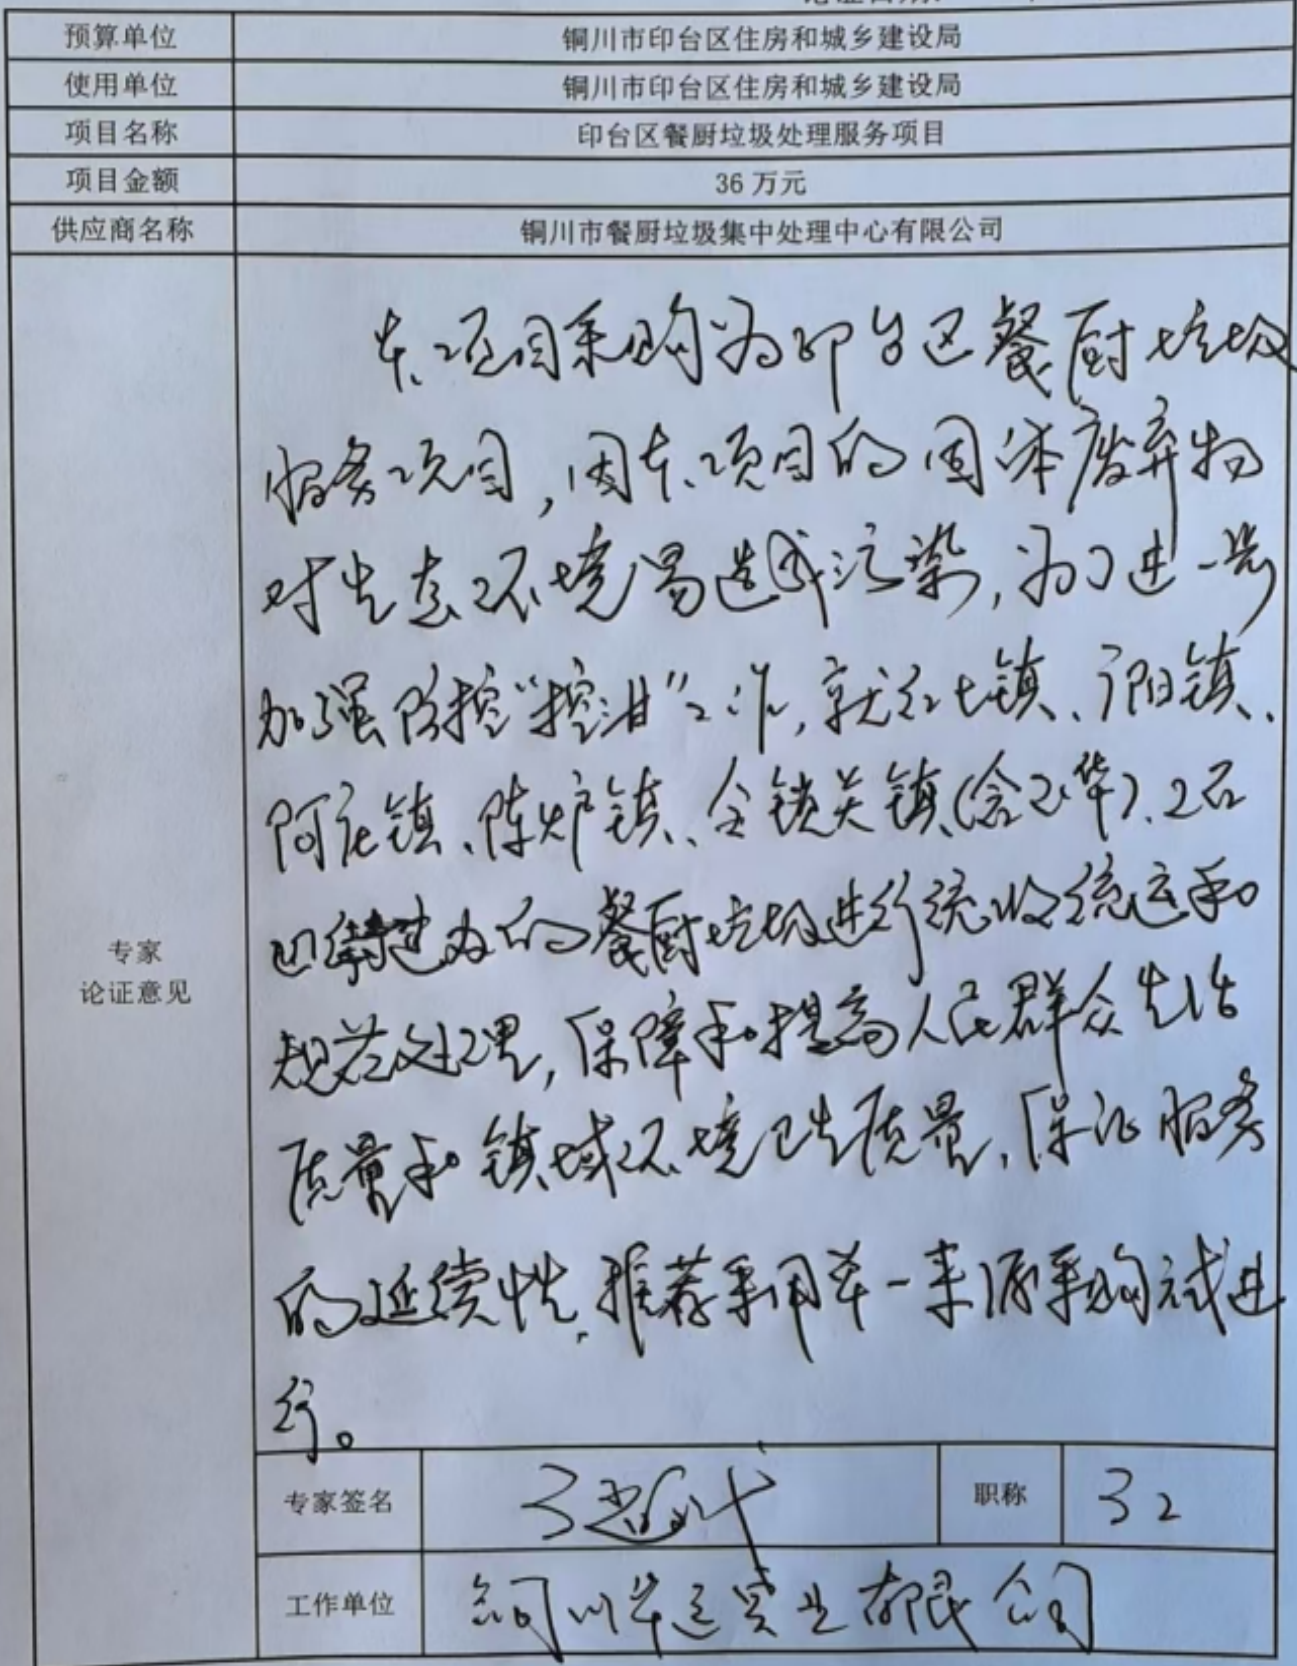 预算单位 铜川市印台区住房和城乡建设局
使用单位 铜川市印台区住房和城乡建设局
项目名称 印台区餐厨垃圾处理服务项目
项目金额 36万元
供应商名称 铜川市餐厨垃圾集中处理中心有限公司
专家
论证意见
本项目采购为印台区餐厨垃圾
服务项目,因本项目的固体废弃物
对生态环境易造成污染,为了进一步
加强防控“控油”工作,就红土镇、广阳镇、
阿庄镇、陈炉镇、金锁关镇(含玉华)、
的餐厨垃圾进行统收统运和
规范处理,保障和提高人民群众生活
质量和镇域环境卫生质量,保证服务
的延续性,推荐采用单一来源采购方式进
行。
专家签名 职称
工作单位 铜川华运实业有限公司